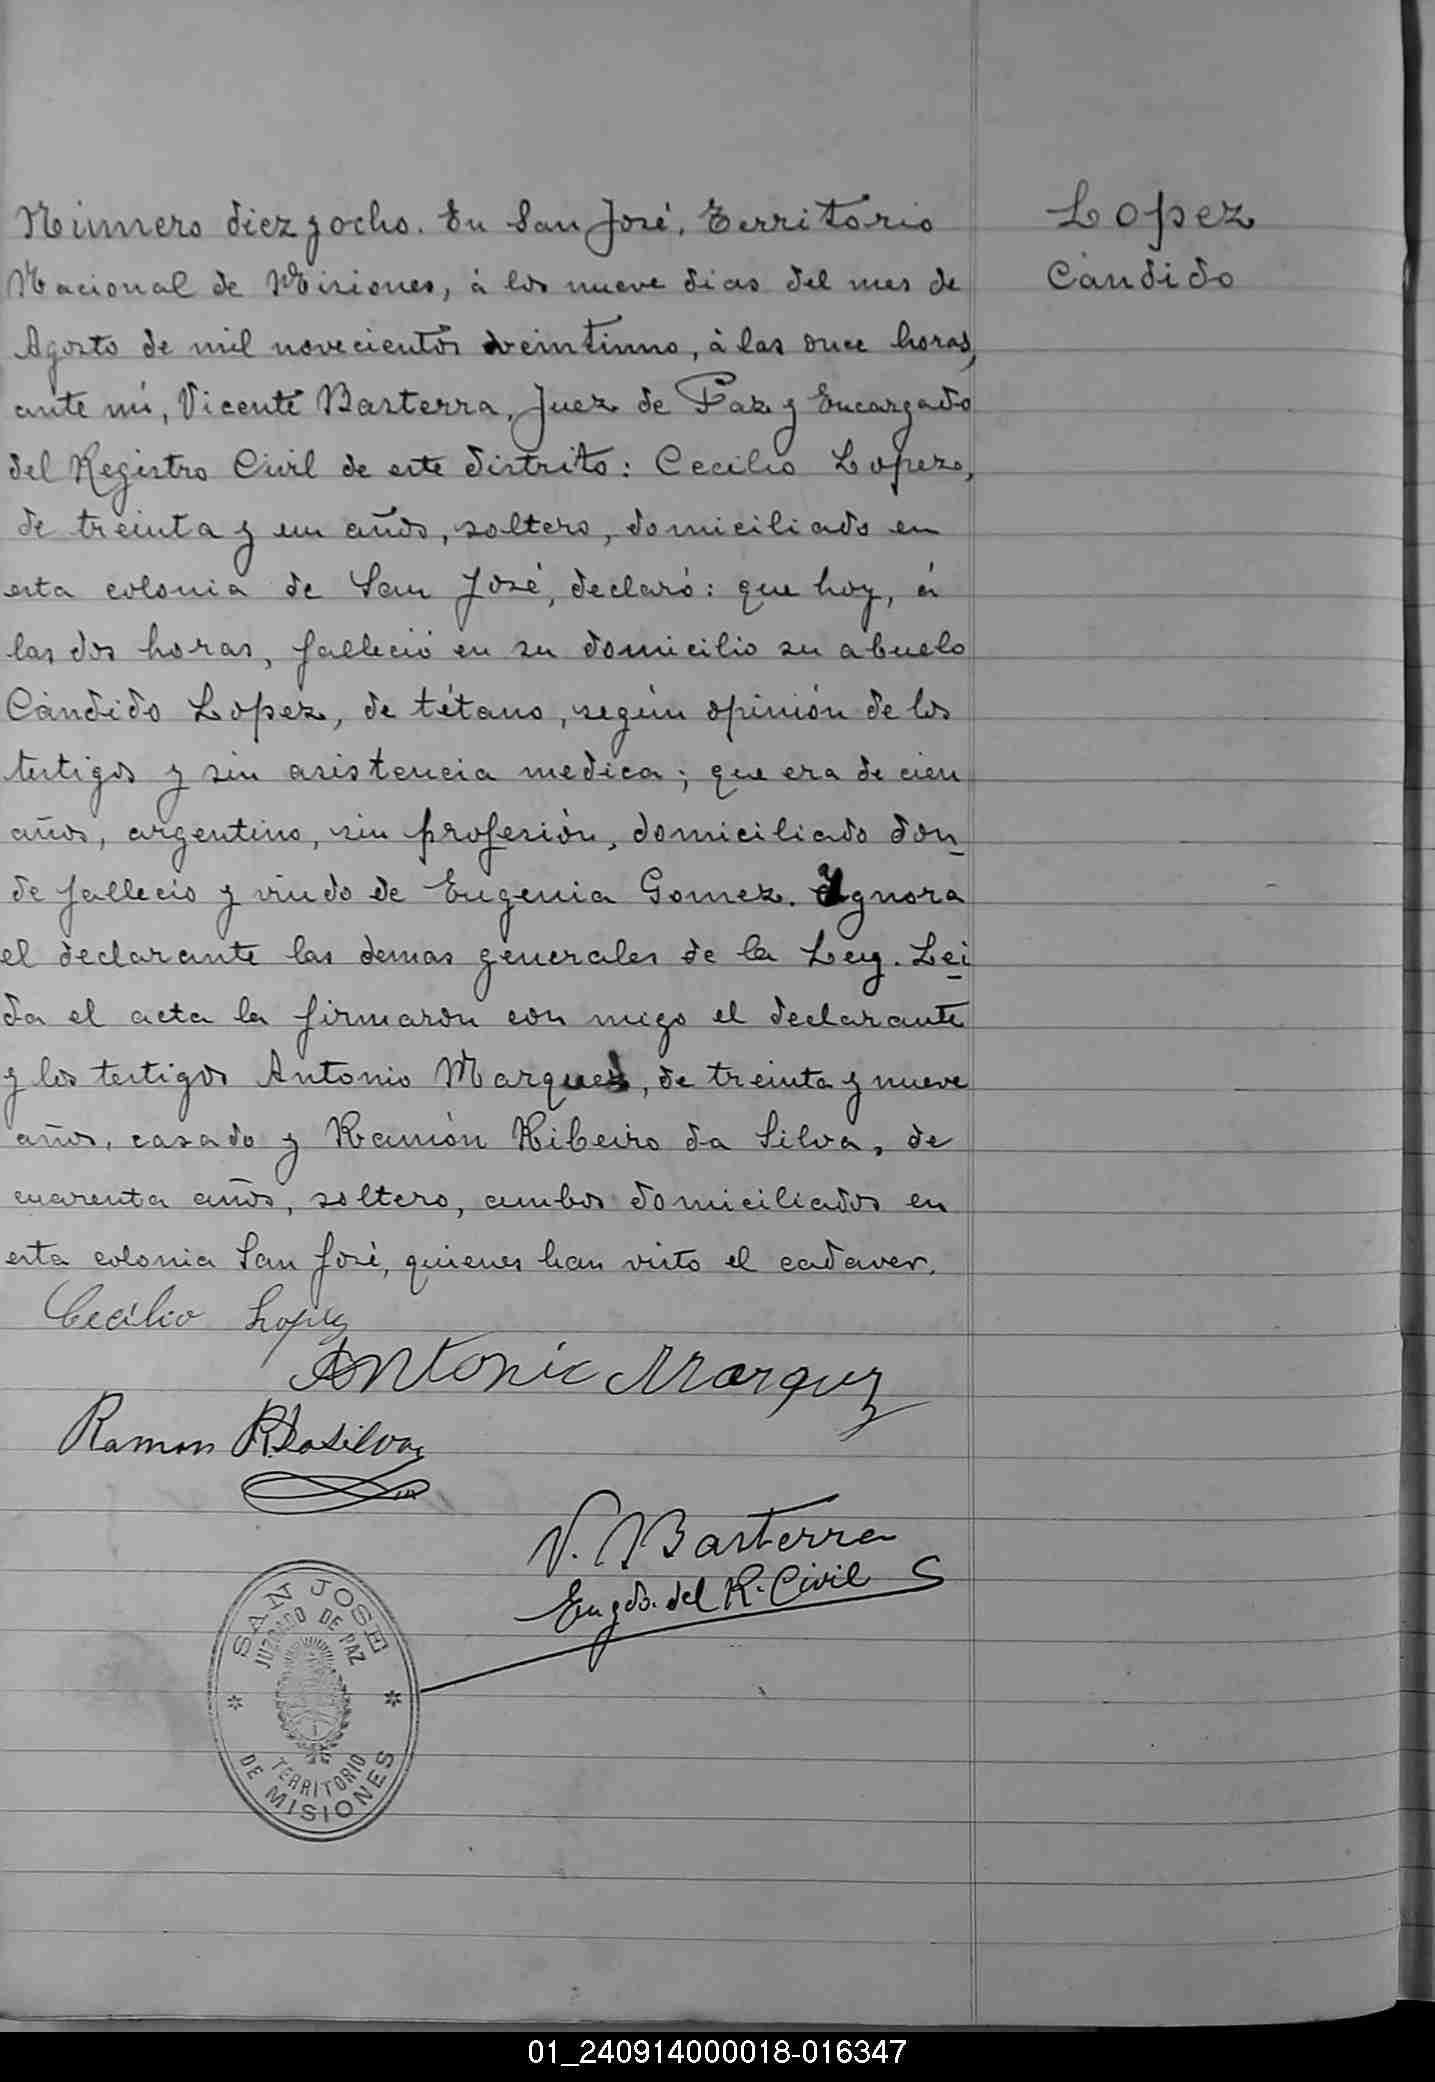 Número diez y ocho. En San José, Territorio
Nacional de Misiones, á los nueve dias del mes de
Agosto de mil novecientos veintiuno, á las once horas,
ante mí, Vicente Basterra, Juez de Paz y Encargado
del Registro Civil de este distrito: Cecilio Lopez,
de treinta y un años, soltero, domiciliado en
esta colonia de San José, declaró: que hoy, á
las dos horas, falleció en su domicilio su abuelo
Cándido Lopez, de tétano, según opinión de los
testigos y sin asistencia medica; que era de cien
años, argentino, sin profesión, domiciliado don
de fallecio y viudo de Eugenia Gomez. Ygnora
el declarante las demas generales de la Ley. Lei
da el acta la firmaron con migo el declarante
y los testigos Antonio Marquez, de treinta y nueve
años, casado y Ramón Ribeiro da Silva, de
cuarenta años, soltero, ambos domiciliados en
esta colonia San José, quienes han visto el cadaver.
Lopez
Cándido
Cecilio Lopez
Antonio Marquez
Ramon R. da Silva
V. Basterra
Engdo. del R. Civil
SAN JOSE
JUZGADO DE PAZ
TERRITORIO
DE MISIONES
01_240914000018-016347